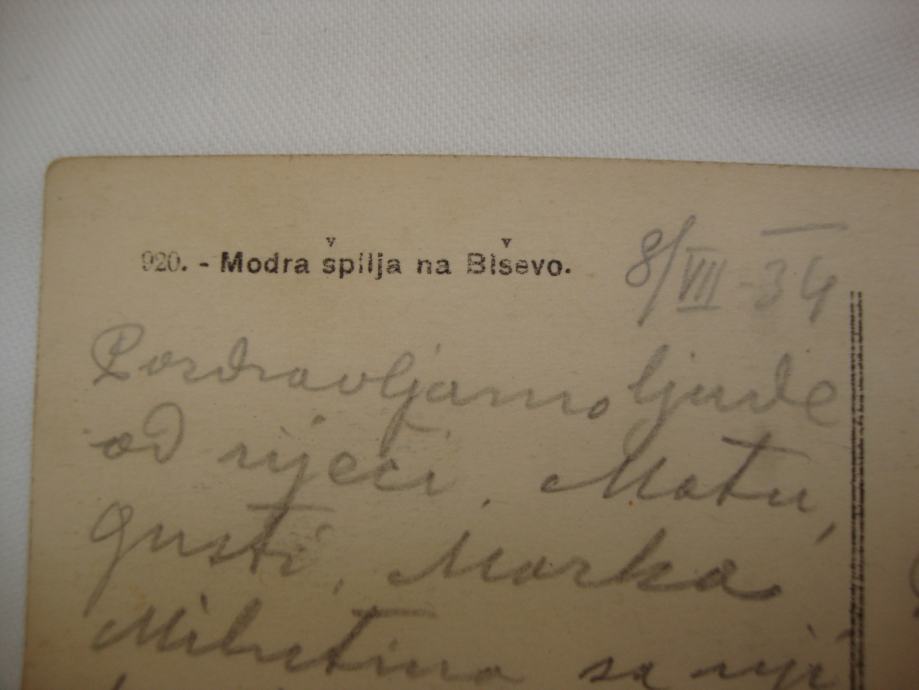 920. - Modra špilja na Biševo.
8/VII-34
Pozdravljamo ljude
od riječi, Matu,
Gusti, Marka
Milutina sa nji